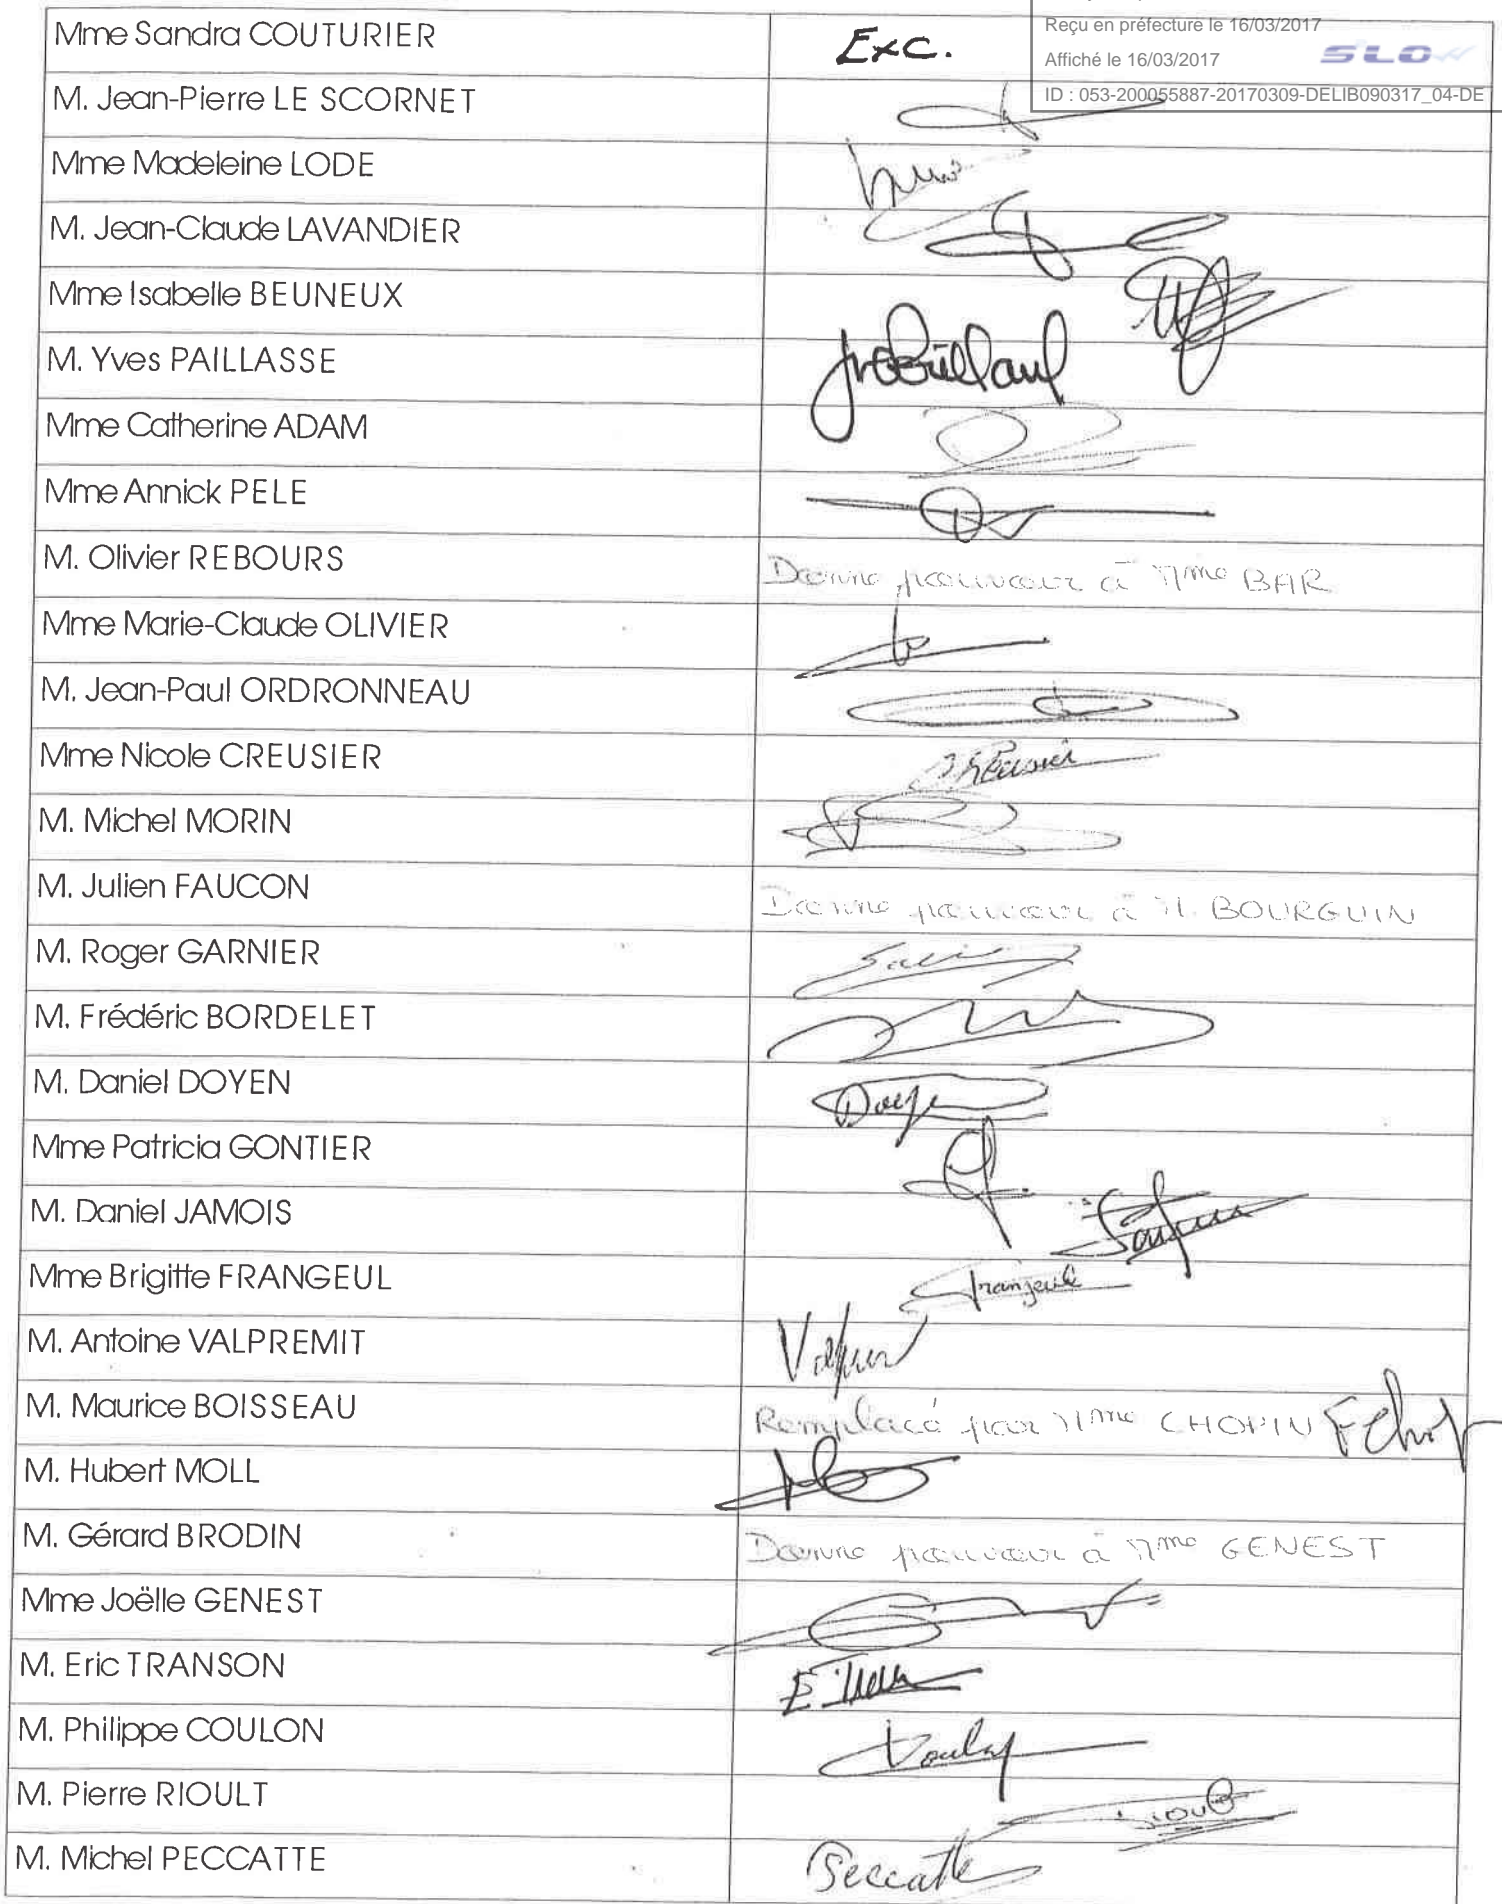 Reçu en préfecture le 16/03/2017
Affiché le 16/03/2017 SLO
ID : 053-200055887-20170309-DELIB090317_04-DE
Mme Sandra COUTURIER Exc.
M. Jean-Pierre LE SCORNET
Mme Madeleine LODE
M. Jean-Claude LAVANDIER
Mme Isabelle BEUNEUX
M. Yves PAILLASSE
Mme Catherine ADAM
Mme Annick PELE
M. Olivier REBOURS Donne pouvoir à Mme BAR
Mme Marie-Claude OLIVIER
M. Jean-Paul ORDRONNEAU
Mme Nicole CREUSIER
M. Michel MORIN
M. Julien FAUCON Donne pouvoir à M. BOURGUIN
M. Roger GARNIER
M. Frédéric BORDELET
M. Daniel DOYEN
Mme Patricia GONTIER
M. Daniel JAMOIS
Mme Brigitte FRANGEUL Frangeul
M. Antoine VALPREMIT
M. Maurice BOISSEAU Remplacé par Mme CHOPIN
M. Hubert MOLL
M. Gérard BRODIN Donne pouvoir à Mme GENEST
Mme Joëlle GENEST
M. Eric TRANSON
M. Philippe COULON
M. Pierre RIOULT
M. Michel PECCATTE Peccatte